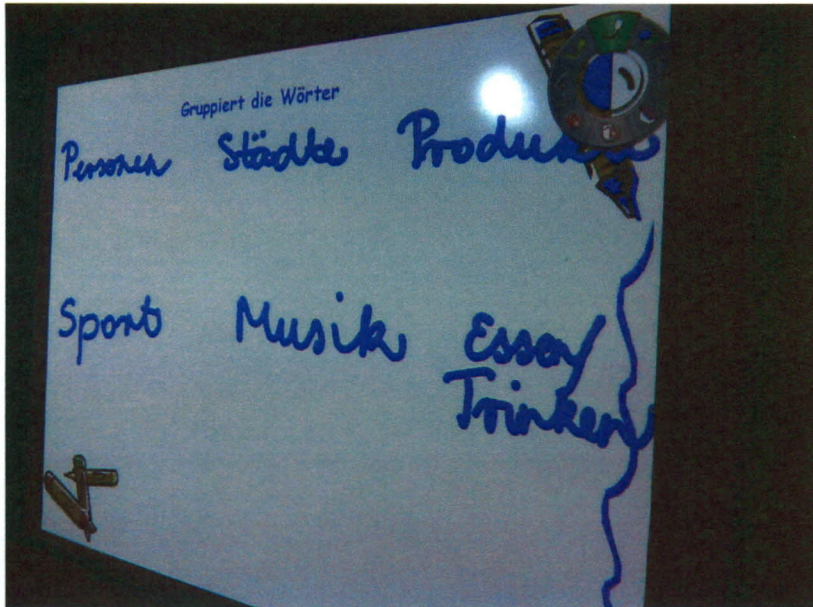 Gruppiert die Wörter
Personen Städte
Sport Musik Essen/
Trinken